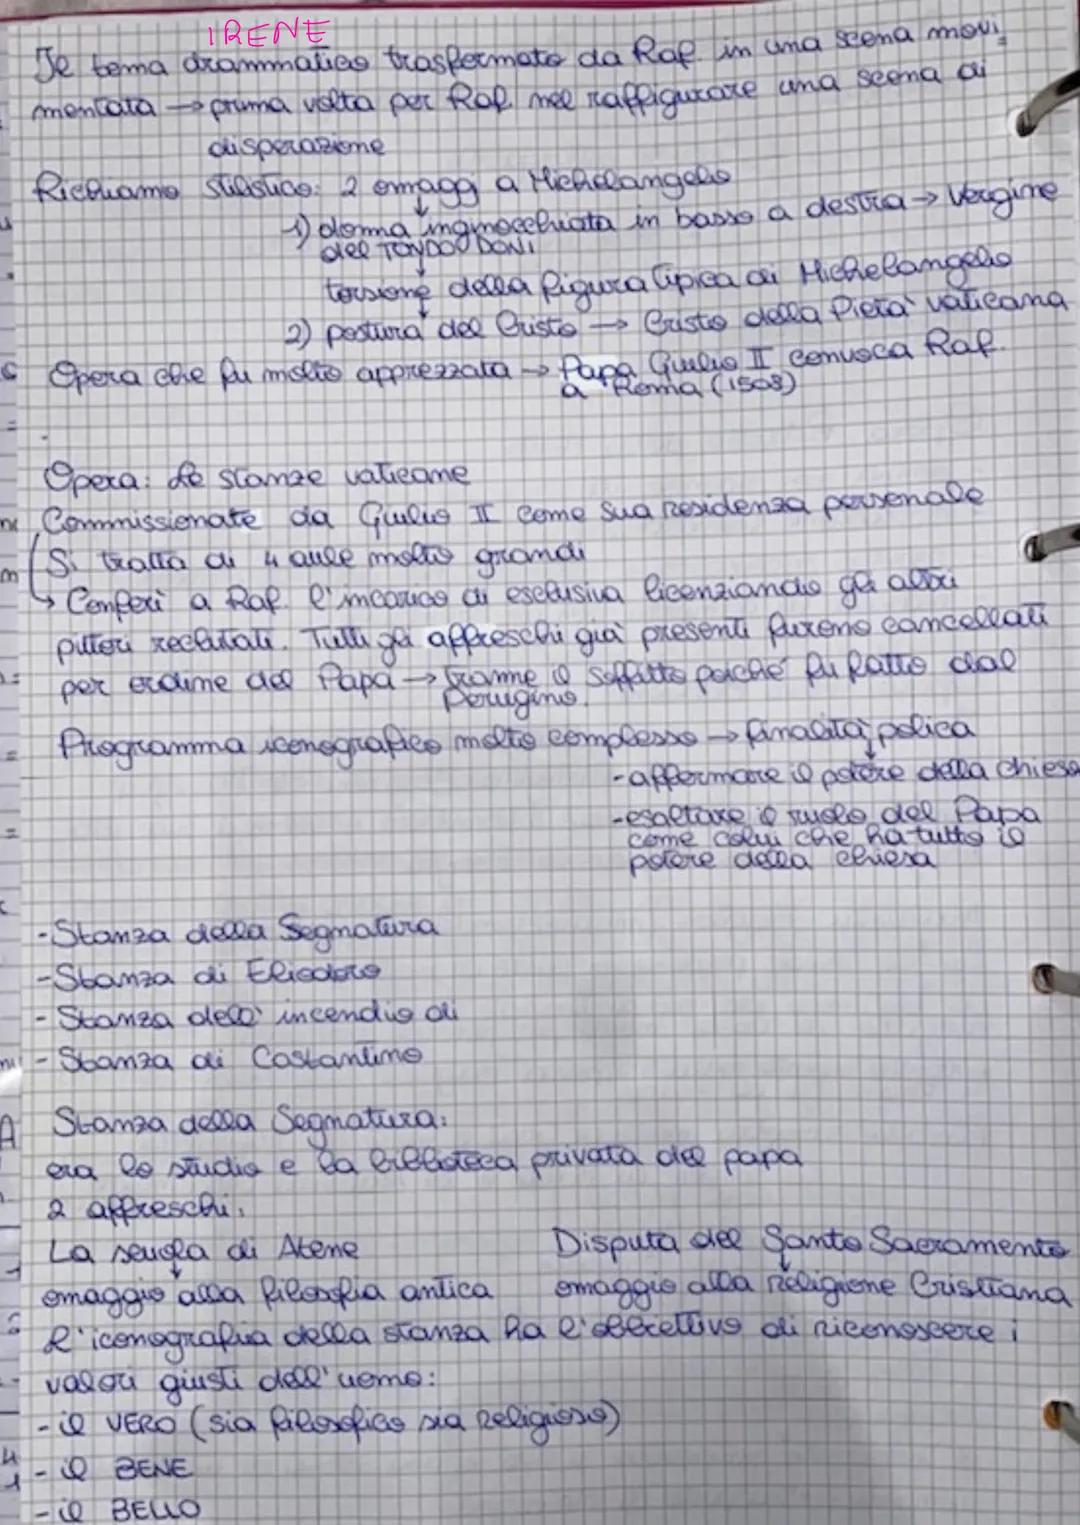 IRENE
Il tema drammatico trasformato da Raf. in una scena movi
mentata → prima volta per Raf. nel raffigurare una scena di
disperazione
Richiamo stilistico: 2 omaggi a Michelangelo
1) donna inginocchiata in basso a destra → Vergine
del TONDO DONI
torsione della figura tipica di Michelangelo
2) postura del Cristo → Cristo della Pietà vaticana
Opera che fu molto apprezzata → Papa Giulio II convoca Raf.
a Roma (1508)
Opera: Le stanze vaticane
Commissionate da Giulio II come sua residenza personale
Si tratta di 4 aule molto grandi
↳ Conferì a Raf. l'incarico di esclusiva licenziando gli altri
pittori reclutati. Tutti gli affreschi già presenti furono cancellati
per ordine del Papa → tranne il soffitto poiché fu fatto dal
Perugino.
Programma iconografico molto complesso → finalità polica
- affermare il potere della chiesa
- esaltare il ruolo del Papa
come colui che ha tutto il
potere della chiesa
- Stanza della Segnatura
- Stanza di Eliodoro
- Stanza dell'incendio di
- Stanza di Costantino
Stanza della Segnatura:
era lo studio e la biblioteca privata del papa
2 affreschi:
La scuola di Atene Disputa del Santo Sacramento
omaggio alla filosofia antica omaggio alla religione Cristiana
L'iconografia della stanza ha l'obbiettivo di riconoscere i
valori giusti dell'uomo:
- il VERO (sia filosofico sia religioso)
- il BENE
- il BELLO